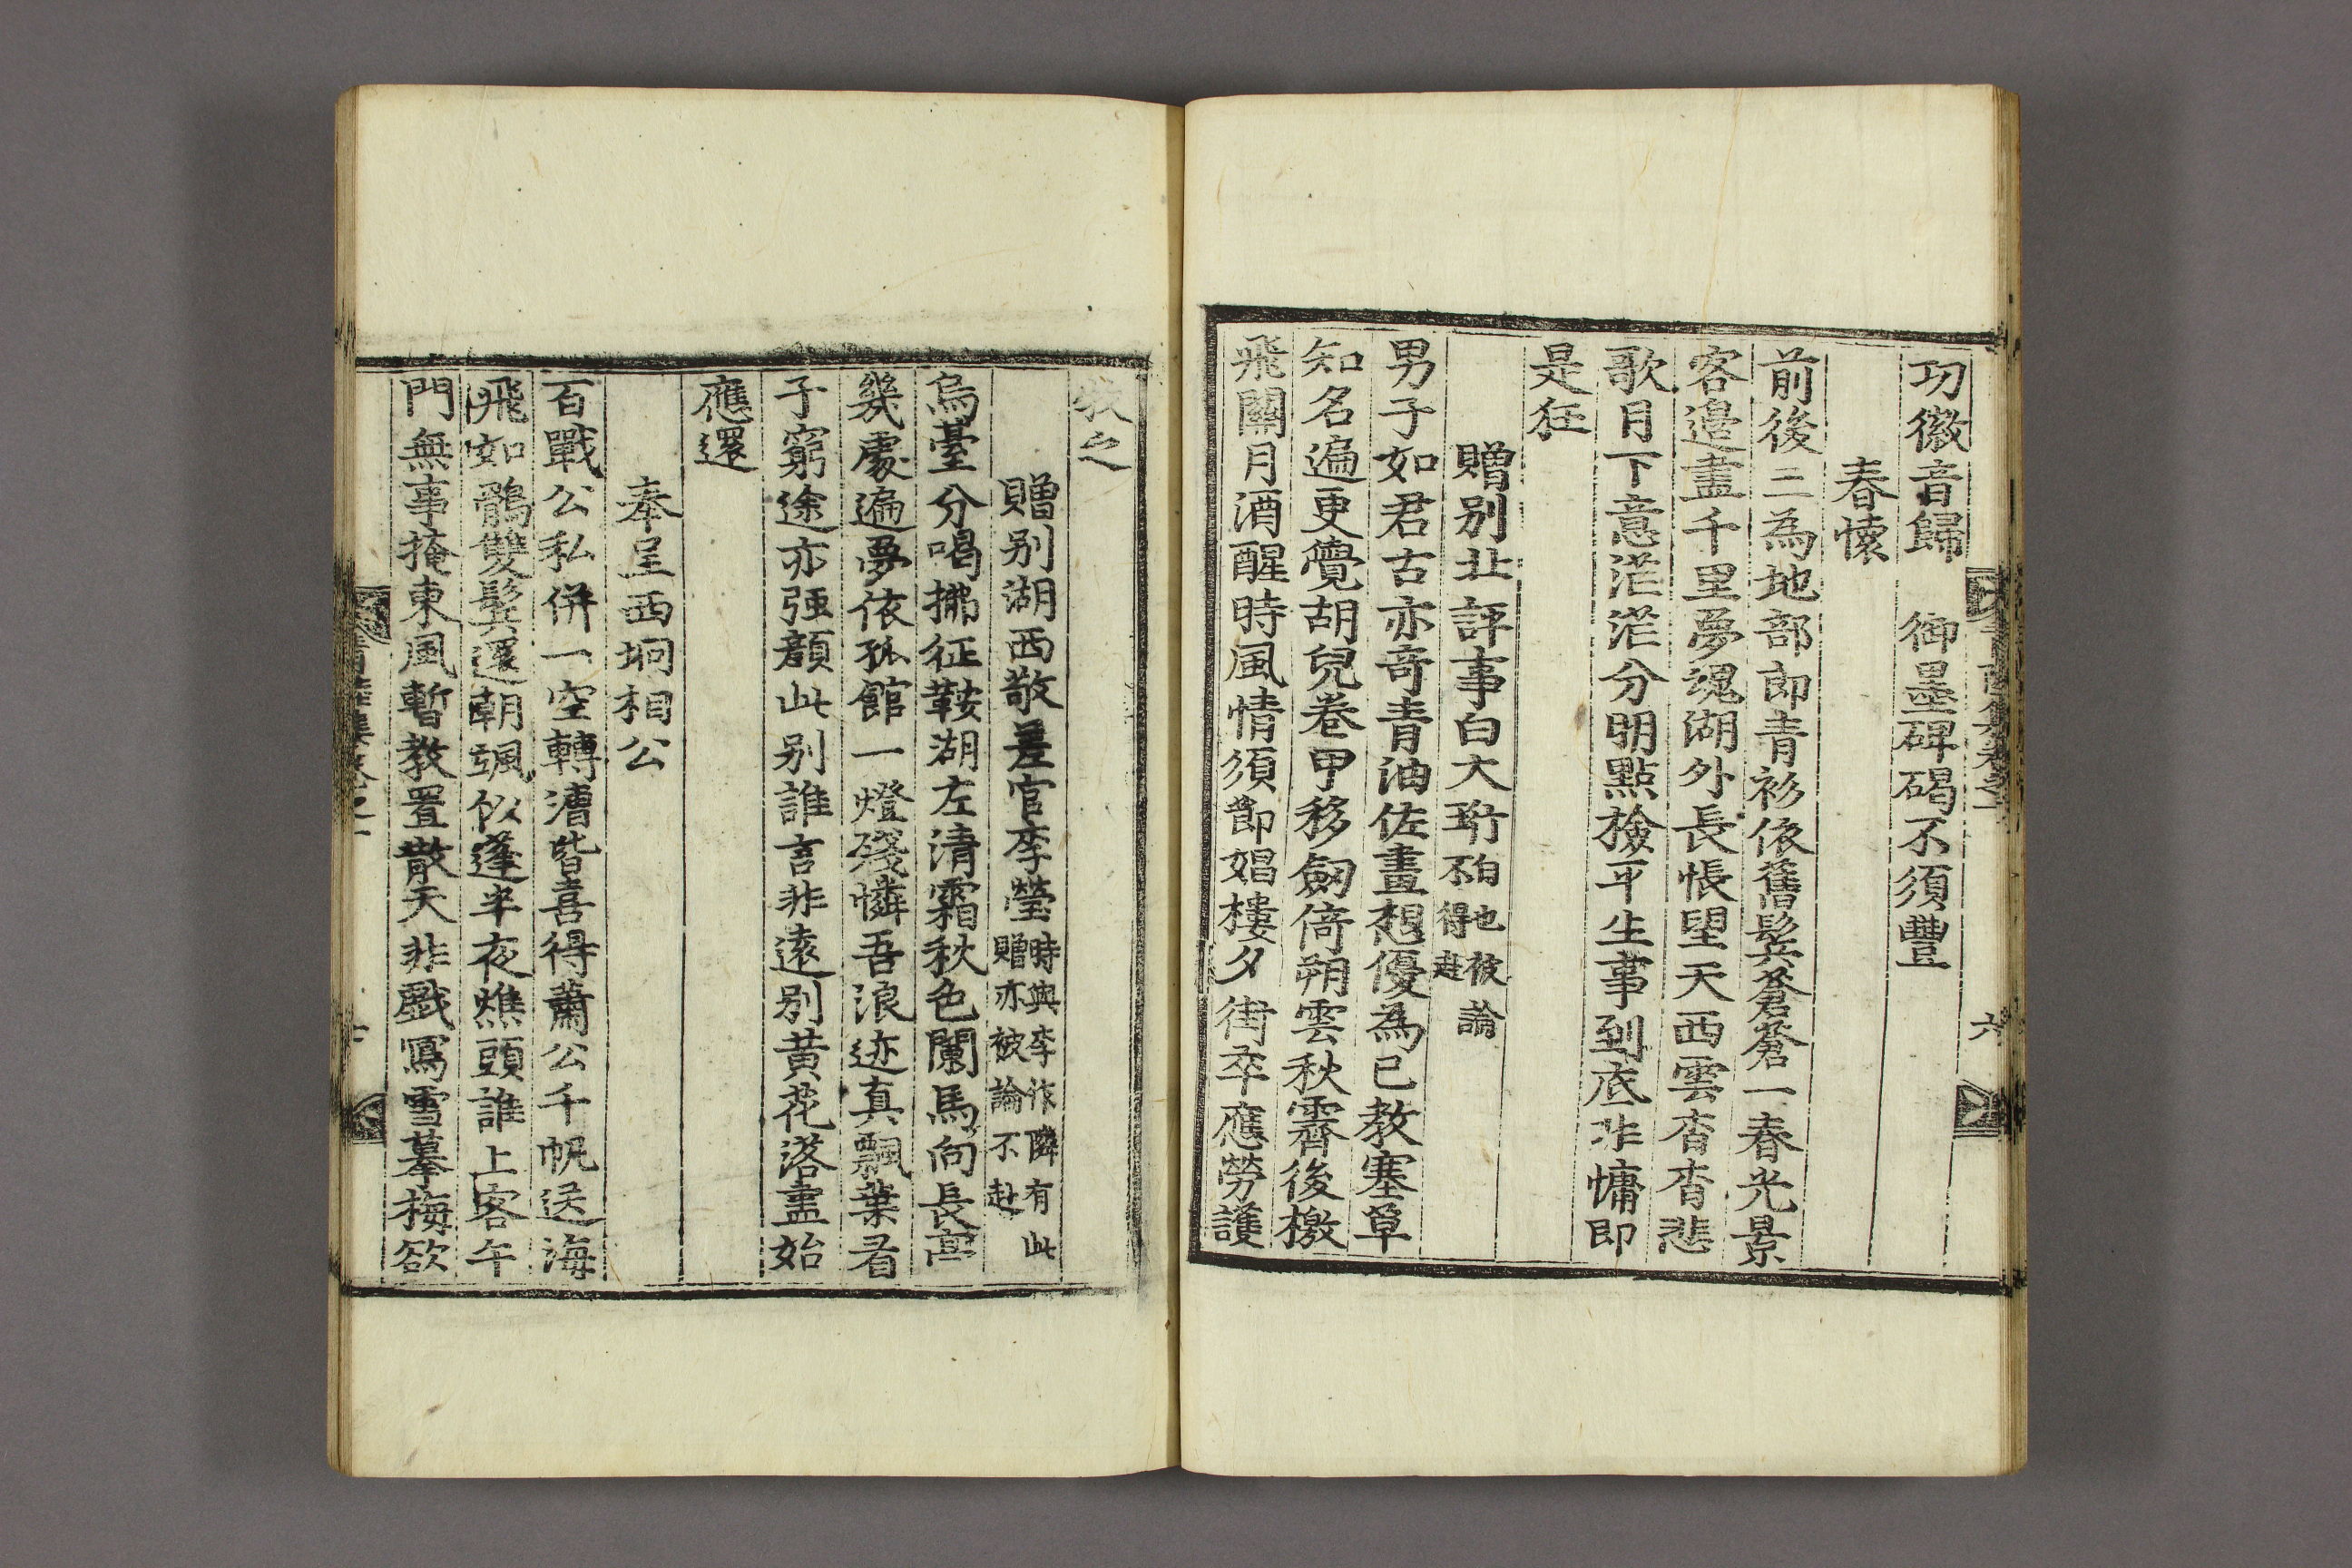 功徽音歸　御墨碑碣不須豐
春懷
前後三為地部郎青衫依舊鬂蒼蒼一春光景
客邉盡千里夢魂湖外長悵望天西雲杳杳悲
歌月下意茫茫分明點檢平生事到底非慵即
是狂
贈別北評事白大珩白也被論不得赴
男子如君古亦奇青油佐畫想優為已教塞草
知名遍更覺胡兒卷甲移劒倚朔雲秋霽後檄
飛關月酒醒時風情須節娼樓夕街卒應勞護
牧之
贈別湖西敬差官李瑩時與李作隣有此贈亦被論不赴
烏臺分喝拂征鞍湖左清霜秋色闌馬向長亭
幾處遍夢依孤館一燈殘憐吾浪迹真飄葉看
子窮途亦强顏此別誰言非遠別黃花落盡始
應還
奉呈西坰相公
百戰公私併一空轉漕皆喜得蕭公千帆送海
飛如鶻雙鬂還朝颯似蓬半夜燋頭誰上客午
門無事掩東風暫教置散天非戱寫雪摹梅欲
集卷之一
六